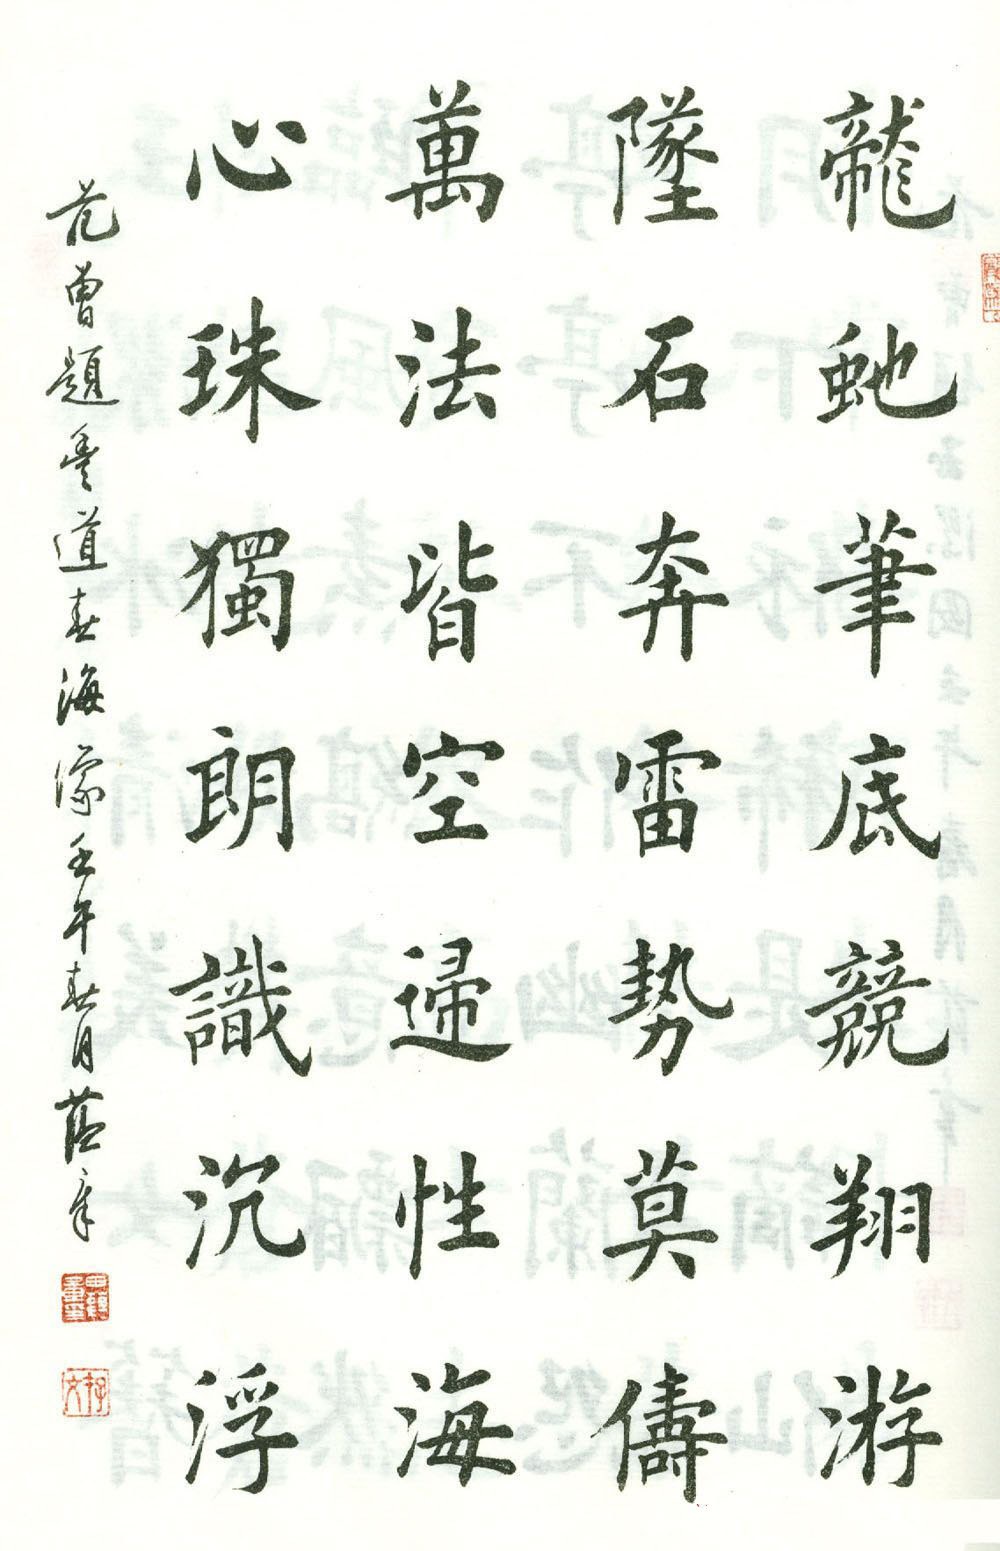 龍虵筆底競翔游
墜石奔雷勢莫儔
萬法皆空歸性海
心珠獨朗識沉浮
范曾題道春海壬午春月